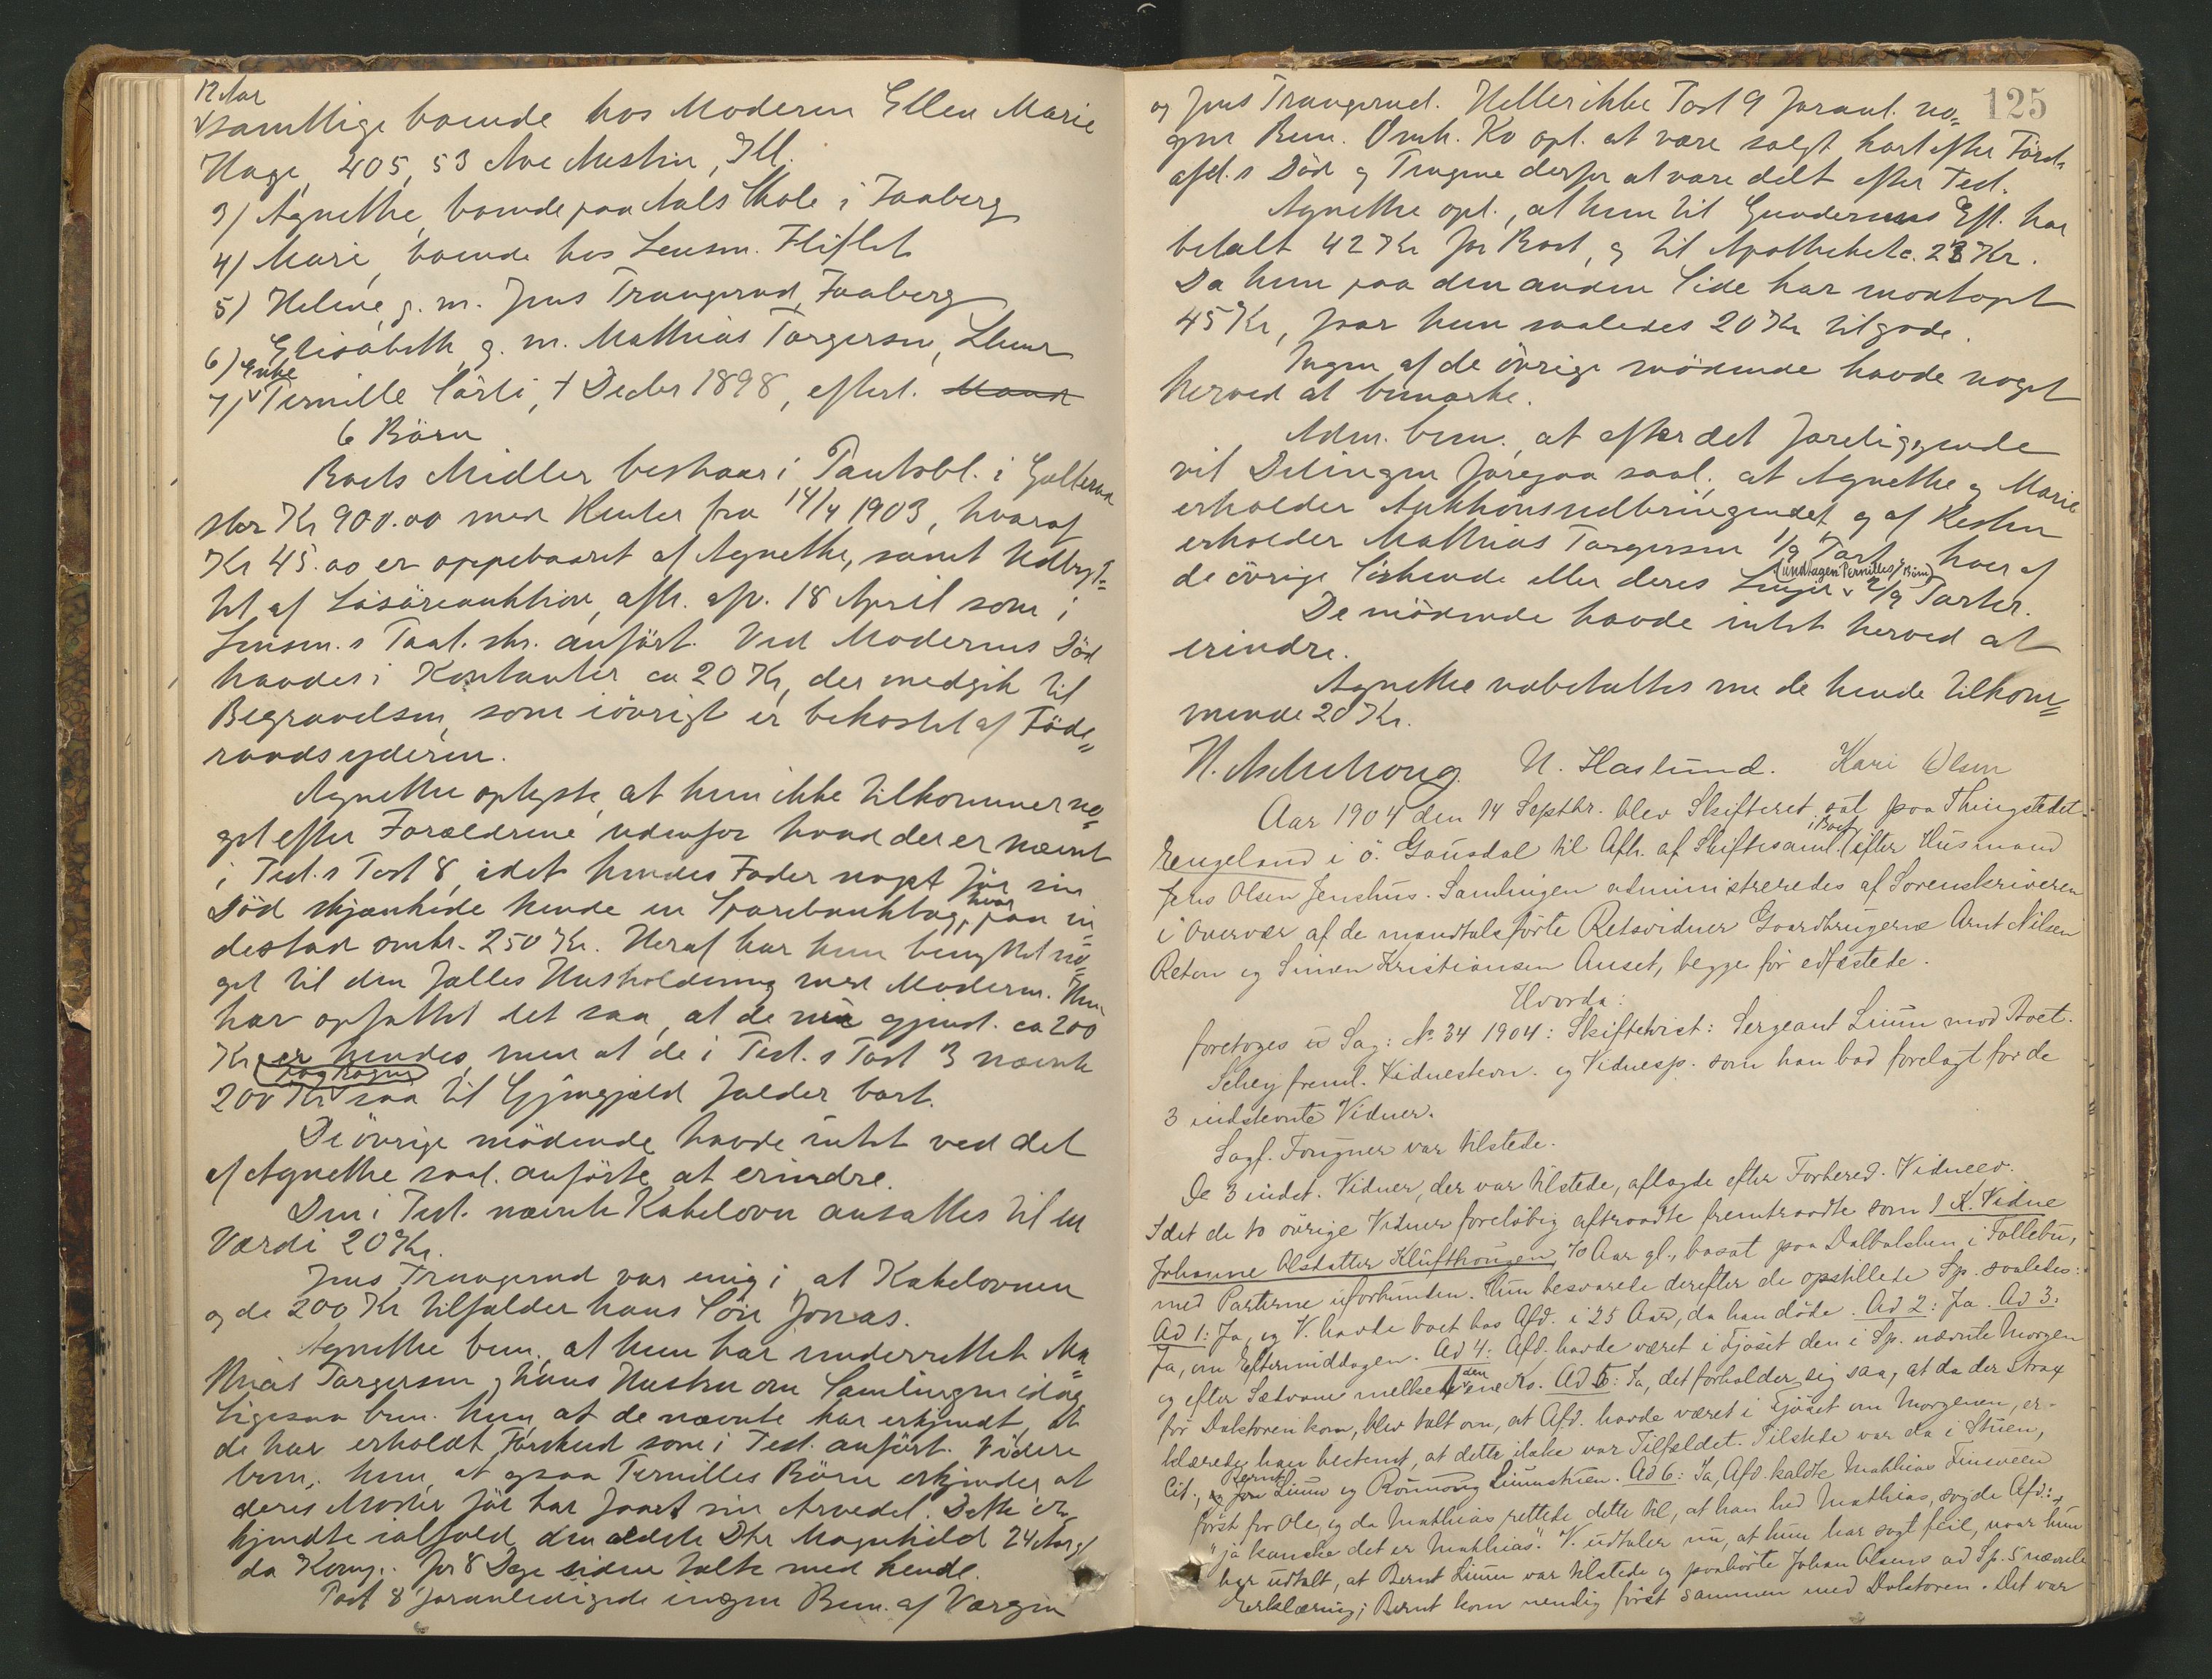 12 Aar
samtlige boende hos Moderen Ellen Marie
Hage, 405, 53 Ave Austin, Ill.
3) Agnethe, boende paa Aals Skole i Faaberg
4) Marie, boende hos Lensm. Fliflet
5) Helene, g. m. Jens Traagerud, Faaberg
6) Elisabeth, g. m. Mathias Torgersen, Lhmr
7) Enke Pernille Sørli, † Decbr 1898, efterl. Mand
6 Børn
Boets Midler bestaar i Pantobl. i
stor Kr 900.00 med Renter fra 14/4 1903, hvoraf
Kr 45.00 er oppebaaret af Agnethe, samt Udbyt=
tet af Løsøreauktion, afh. afv. 18 April som i
Lensm.s skr. anført. Ved Moderens Død
havdes i Kontanter ca 20 Kr, der medgik til
Begravelsen, som iøvrigt er bekostet af Føde=
raadsyderen.
Agnethe oplyste, at hun ikke tilkommer no=
get efter Forældrene udenfor hvad der er nævnt
i Test.s Post 8, idet hendes Fader noget før sin
Død skjænkede hende en Sparebankbog, hvor paa in=
destod omtr. 250 Kr. Heraf har hun benyttet no=
get til den fælles Husholdning med Moderen. Hun
har opfattet det saa, at de nu gjenst. ca 200
Kr er hendes, men at de i Test.s Post 3 nævnte
200 Kr saa til Gjengjæld falder bort.
De øvrige mødende havde intet ved det
af Agnethe saal. anførte at erindre.
Den i Test. nævnte Kakelovn ansattes til en
Værdi 20 Kr.
Jens Traagerud var enig i, at Kakelovnen
og de 200 Kr tilfalder hans Søn Jonas.
Agnethe bem. at hun har underrettet Ma=
thias Torgersen og hans Hustru om Samlingen idag
Ligesaa bem. hun, at de nævnte har erkjendt, at
de har erholdt Forskud som i Test. anført. Videre
bem. hun, at ogsaa Pernilles Børn erkjender, at
deres Moder før har faaet sin Arvedel. Dette er=
kjendte ialfald den ældste Dtr Magnhild 24 Aar gl
da Komp. for 8 Dage siden talte med hende.
Post 8 foranledigede ingen Bem. af Værgen
125
og Jens Traagerud. Heller ikke Post 9 foranl. no=
gen Bem. Omh. Ko opl. at være solgt kort efter Først=
afd.s Død og Pengene derfor at være delt efter Test.
Agnethe opl., at hun til Gundersens Eft. har
betalt 42 Kr for Kost, og til Apotheket c. 23 Kr.
Da hun paa den anden Side har modtaget
45 Kr, faar hun saaledes 20 Kr tilgode.
Ingen af de øvrige mødende havde noget
herved at bemærke.
Adm. bem., at efter det foreliggende
vil Delingen foregaa saal., at Agnethe og Marie
erholder Auktionsudbringendet, og af Resten
erholder Mathias Torgersen 1/9 Part, hver af
de øvrige Søskende eller deres Linjer (undtagen Pernilles Børn) 2/9 Parter.
De mødende havde intet herved at
erindre.
Agnethe udbetaltes nu de hende tilkom=
mende 20 Kr.
N. Haslund. Kari Olsen
Aar 1904 den 14 Septbr. blev Skifteret sat paa Thingstedet
Engeland i Ö. Gausdal til Afh. af Skiftesaml. i Boet efter Husmand
Jens Olsen Jenshus. Samlingen administreredes af Sorenskriveren
i Overvær af de mandtalsførte Retsvidner Gaardbrugerne Arnt Nilsen
Reton og Simen Kristiansen Auset, begge før edfæstede.
Hvorda:
foretoges Sag: № 34 1904: Skiftetvist: Sergeant Lium mod Boet.
Schey freml. Vidnestevn. og Vidnesp. som han bad forelagt for de
3 indstevnte Vidner.
Sagf. Fougner var tilstede.
De 3 indst. Vidner, der var tilstede, aflagde efter Forbered. Vidneed.
Idet de to øvrige Vidner foreløbig aftraadte fremtraadte som 1 K. Vidne
Johanne Olsdatter Klufthougen, 70 Aar gl., bosat paa Dalbakken i Follebu,
med Parterne uforbunden. Hun besvarede derefter de opstillede Sp. saaledes:
Ad 1: Ja, og V. havde boet hos Afd. i 25 Aar, da han døde. Ad 2: Ja. Ad 3:
Ja, om Eftermiddagen. Ad 4: Afd. havde været i Fjøset den i Sp. nævnte Morgen
og efter Sædvane melket den ene Ko. Ad 5: Ja, det forholder sig saa, at da der strax
før Doktoren kom, blev talt om, at Afd. havde været i Fjøset om Morgenen, er-
klærede han bestemt, at dette ikke var Tilfældet. Tilstede var da i Stuen,
Cit., Bernt Lium og Rønnaug Liumstuen. Ad 6: Ja, Afd. kaldte Mathias Finsveen
først for Ole, og da Mathias rettede dette til, at han hed Mathias, sagde Afd.:
"ja kanske det er Mathias". V. udtaler nu, at hun har sagt feil, naar hun
har udtalt, at Bernt Lium var tilstede og paahørte Johan Olsens ad Sp. 5 nævnte
Erklæring; Bernt kom nemlig først sammen med Doktoren. Det var